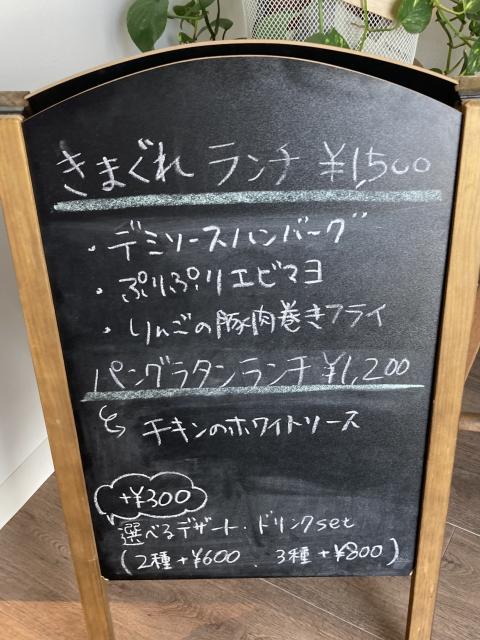 きまぐれ ランチ ¥1,500
・デミソースハンバーグ
・ぷりぷりエビマヨ
・りんごの豚肉巻きフライ
パングラタンランチ ¥1,200
↪ チキンのホワイトソース
+¥300
選べるデザート・ドリンクset
(2種+¥600、3種+¥800)